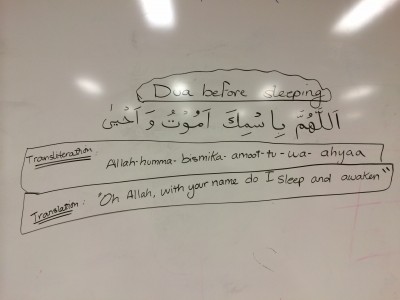 Dua before sleeping
اَللّٰهُمَّ بِاسْمِكَ اَمُوْتُ وَ اَحْيٰى
Transliteration: Allah-humma-bismika-amoot-tu-wa-ahyaa
Translation: "Oh Allah, with your name do I sleep and awaken"